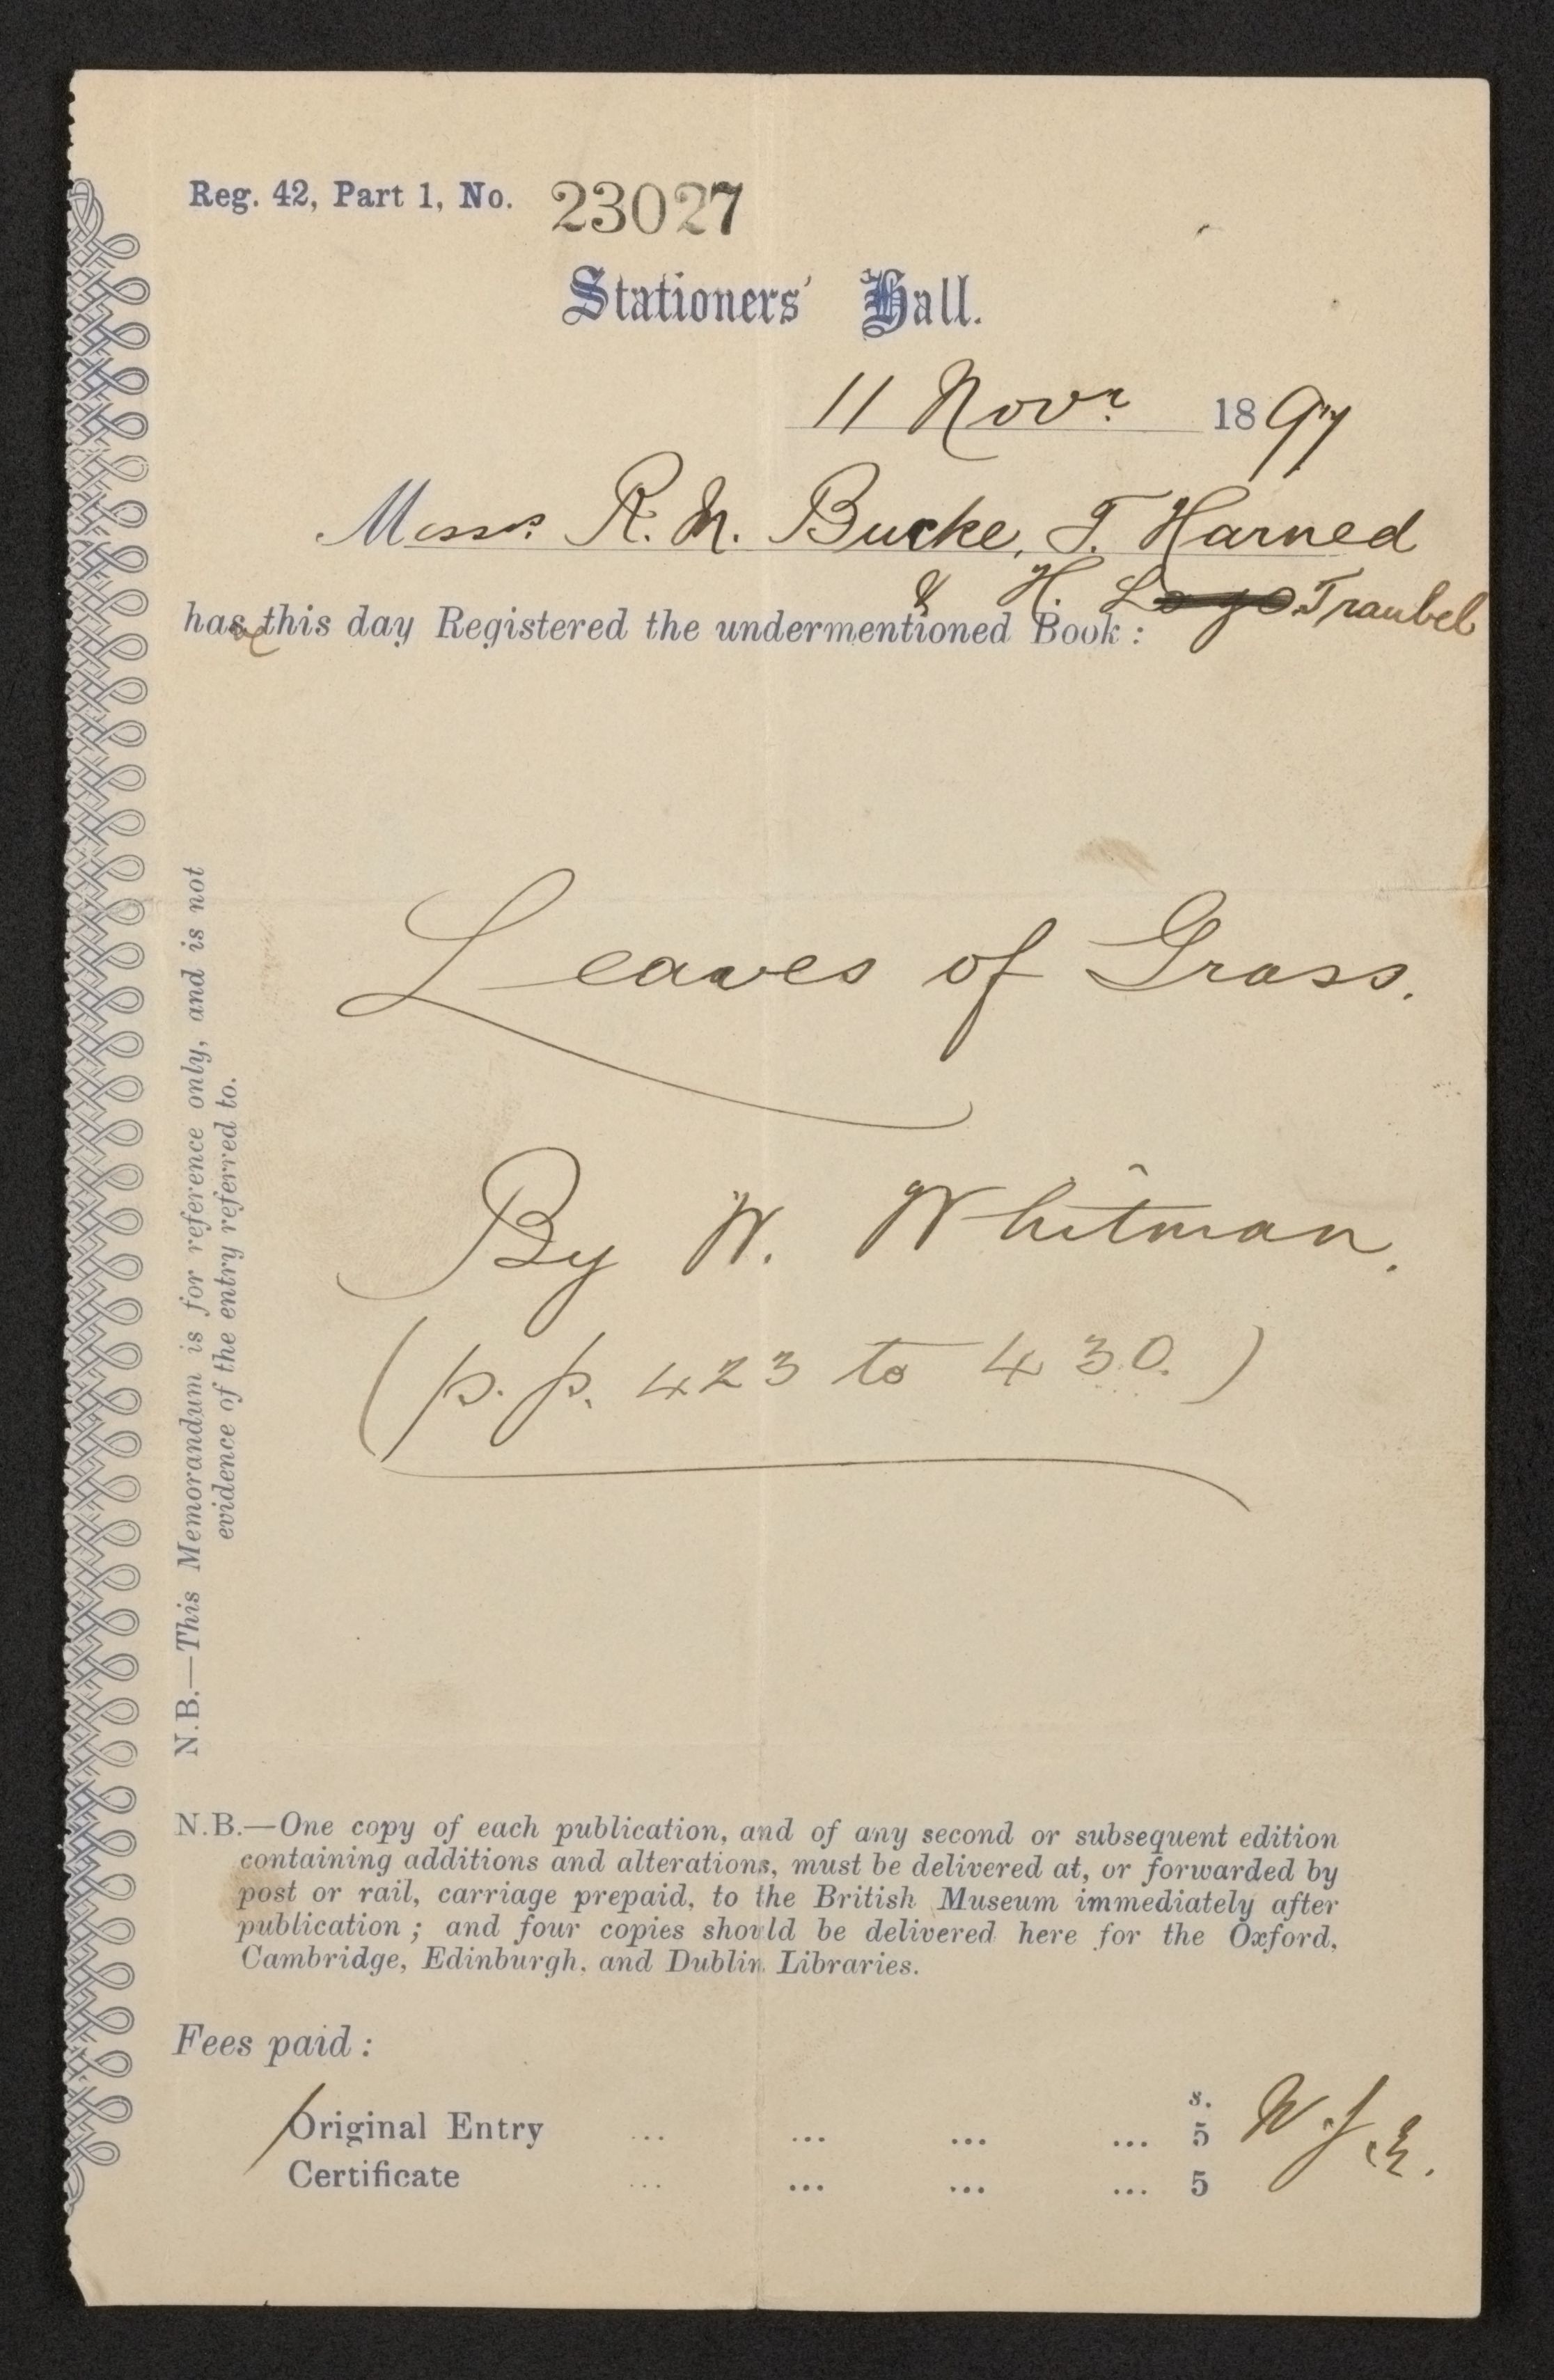 Reg. 42, Part 1, No. 23027
Stationers' Hall.
11 Novr. 1897
Messrs. R. M. Bucke, T. Harned
& H. L Traubel
have this day Registered the undermentioned Book :
Leaves of Grass.
By W. Whitman.
(p.p. 423 to 430.)
N.B.—This Memorandum is for reference only, and is not
evidence of the entry referred to.
N.B.—One copy of each publication, and of any second or subsequent edition
containing additions and alterations, must be delivered at, or forwarded by
post or rail, carriage prepaid, to the British Museum immediately after
publication ; and four copies should be delivered here for the Oxford,
Cambridge, Edinburgh, and Dublin Libraries.
Fees paid :
s.
Original Entry ... ... ... ... 5
Certificate ... ... ... ... 5